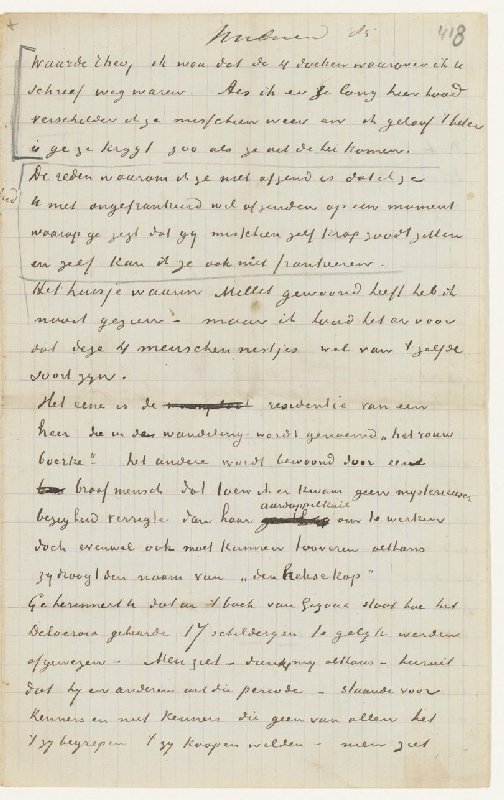 418
Waarde Theo, ik wou dat de 4 doeken waarover ik u
schreef weg waren Als ik er ze lang hier houd
verschilder ik ze misschien weer en ik geloof 't beter
is ge ze krygt zoo als ze uit de hei komen.
De reden waarom ik ze niet afzend is dat ik ze
U niet ongefrankeerd wil afzenden op een moment
waarop ge zegt dat gy misschien zelf krap zoudt zitten
en zelf kan ik ze ook niet frankeeren.
Het huisje waarin Millet gewoond heeft heb ik
nooit gezien – maar ik houd het er voor
dat deze 4 menschennestjes wel van 't zelfde
soort zyn.
Het eene is de residentie van een
heer die in de wandeling wordt genoemd „het rouw
boerke” het andere wordt bewoond door eene
braaf mensch dat toen ik er kwam geen mysterieuser
bezigheid verrigte dan haar aardappelkuil om te werken
doch evenwel ook moet kunnen tooveren althans
zy draagt den naam van „den heksekop”
Ge herinnert U dat in 't boek van Gigoux staat hoe het
Delacroix gebeurde 17 schilderyen te gelyk werden
afgewezen – Men ziet – dunkt my althans – hieruit
dat hy en anderen uit die periode – staande voor
kenners en niet kenners die geen van allen het
't zy begrepen 't zy koopen wilden – men ziet